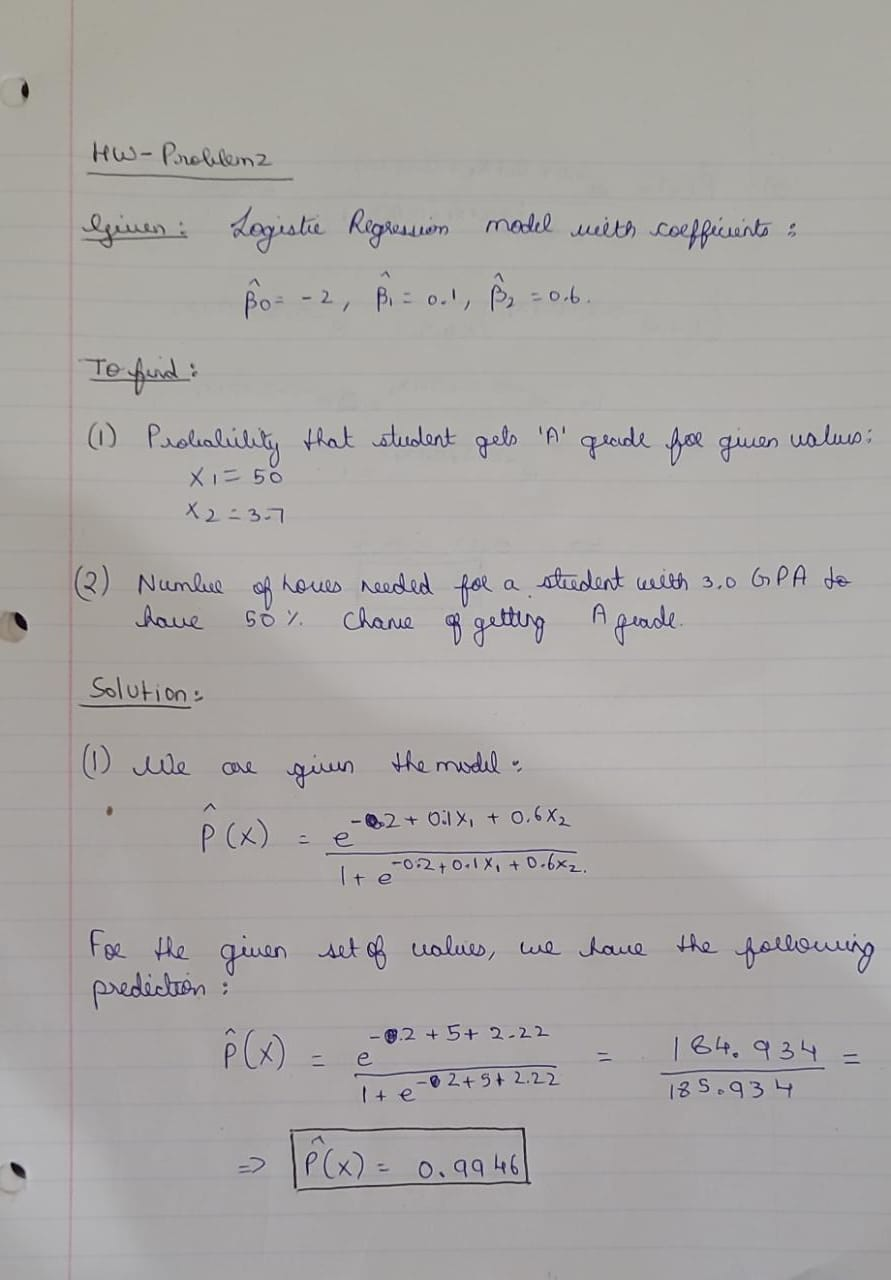 HW-Problem2
Given: Logistic Regression model with coefficients:
β̂0 = -2, β̂1 = 0.1, β̂2 = 0.6.
To find:
(1) Probability that student gets 'A' grade for given values:
X1 = 50
X2 = 3.7
(2) Number of hours needed for a student with 3.0 GPA to
have 50% chance of getting A grade.
Solution:
(1) We are given the model:
P̂(X) = e^(-2 + 0.1X1 + 0.6X2) / (1 + e^(-0.2 + 0.1X1 + 0.6X2).
For the given set of values, we have the following
prediction:
P̂(X) = e^(-0.2 + 5 + 2.22) / (1 + e^(-2 + 5 + 2.22)) = 184.934 / 185.934 =
=> P̂(X) = 0.9946